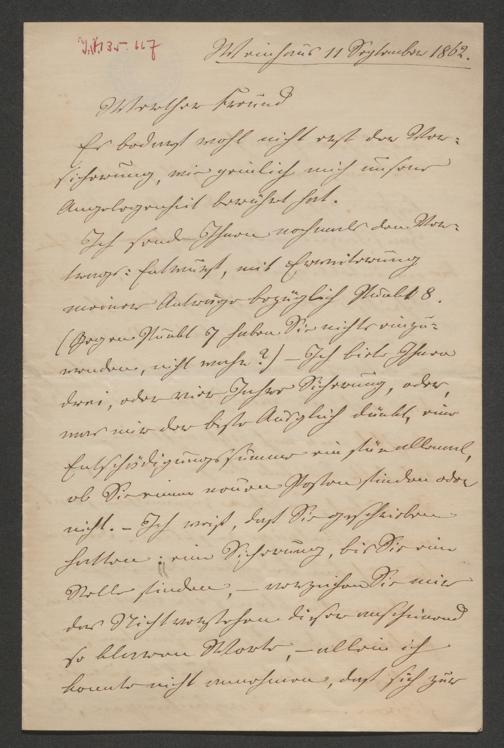 I.N. 135.117
Weinhaus 11 September 1862.
Werther Freund
Es bedarf wohl nicht erst der Ver-
sicherung, wie peinlich mich unsere
Angelegenheit berührt hat.
Ich sende Ihnen nochmals den Ver-
trags-Entwurf, mit Erweiterung
meiner Anträge bezüglich Punkt 8.
(Gegen Punkt 7 haben Sie nichts einzu-
wenden, nicht wahr?) – Ich biete Ihnen
drei, oder vier Jahre Sicherung, oder,
was mir der beste Ausglich dünkt, eine
Entschädigungssumme ein für allemal,
ob Sie einen neuen Posten finden oder
nicht. – Ich weiß, daß Sie geschrieben
hatten: eine Sicherung, bis Sie eine
Stelle finden, – verzeihen Sie mir
das Nichtverstehen dieser anscheinend
so klaren Worte, – allein ich
konnte nicht annehmen, daß sich zur